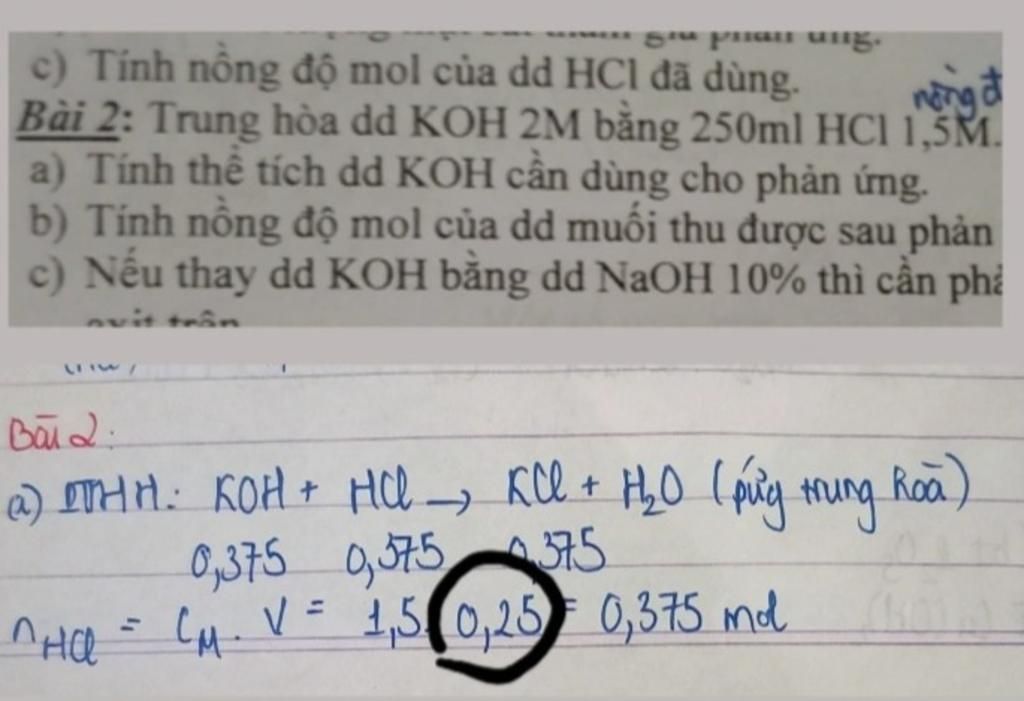 c) Tính nồng độ mol của dd HCl đã dùng.
nồng đ
Bài 2: Trung hòa dd KOH 2M bằng 250ml HCl 1,5M.
a) Tính thể tích dd KOH cần dùng cho phản ứng.
b) Tính nồng độ mol của dd muối thu được sau phản
c) Nếu thay dd KOH bằng dd NaOH 10% thì cần phả
Bài 2:
a) PTHH: KOH + HCl → KCl + H₂O (pứng trung hoà)
0,375 0,375 0,375
nHCl = CM . V = 1,5. 0,25 = 0,375 mol